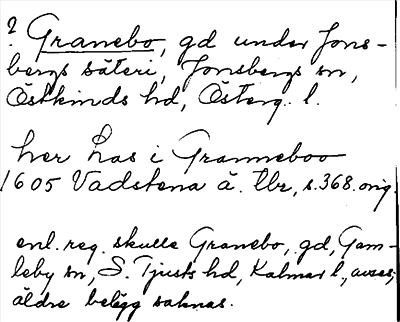 ? Granebo, gd under Jons-
bergs säteri, Jonsbergs sn,
Östkinds hd, Österg. l.
her Las i Granneboo
1605 Vadstena ä. tbr, s. 368. orig.
enl. reg. skulle Granebo, gd, Gam-
leby sn, S. Tjusts hd, Kalmar l., avses,
äldre belägg saknas.